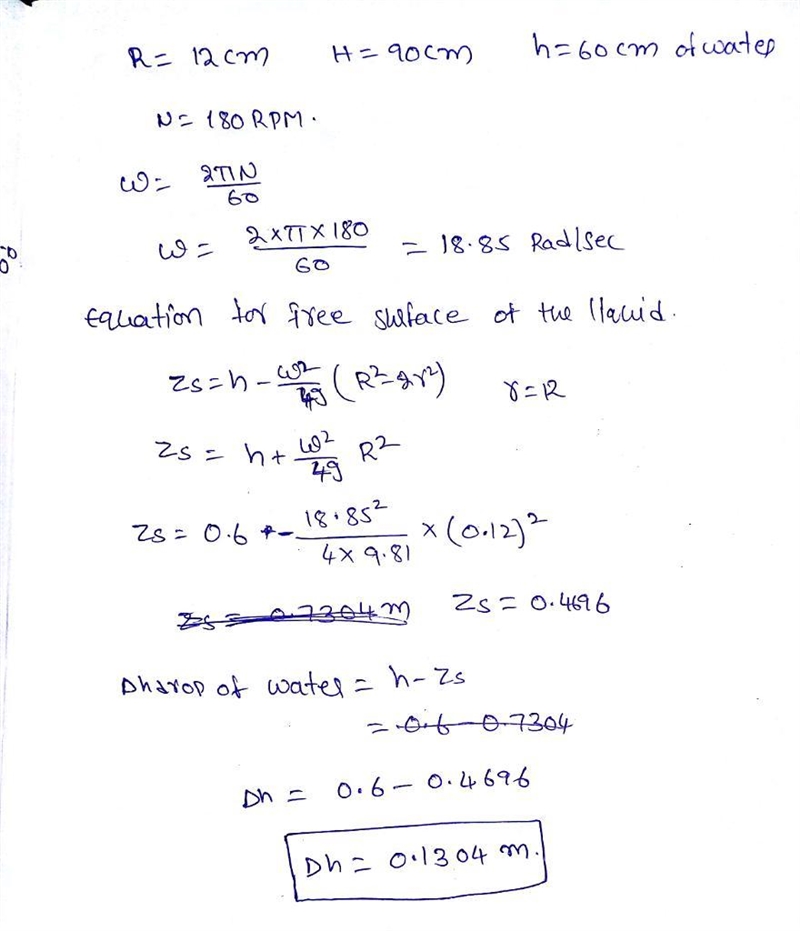 R = 12cm H = 90cm h = 60 cm of water
N = 180 RPM.
ω = 2πN/60
ω = 2×π×180/60 = 18.85 Rad/Sec
Equation for free surface of the liquid.
Zs = h - ω²/4g (R² - 2r²) r = R
Zs = h + ω²/4g R²
Zs = 0.6 - 18.85²/4×9.81 × (0.12)²
Zs = 0.7304m Zs = 0.4696
Dh drop of water = h - Zs
= 0.6 - 0.7304
Dh = 0.6 - 0.4696
Dh = 0.1304 m.